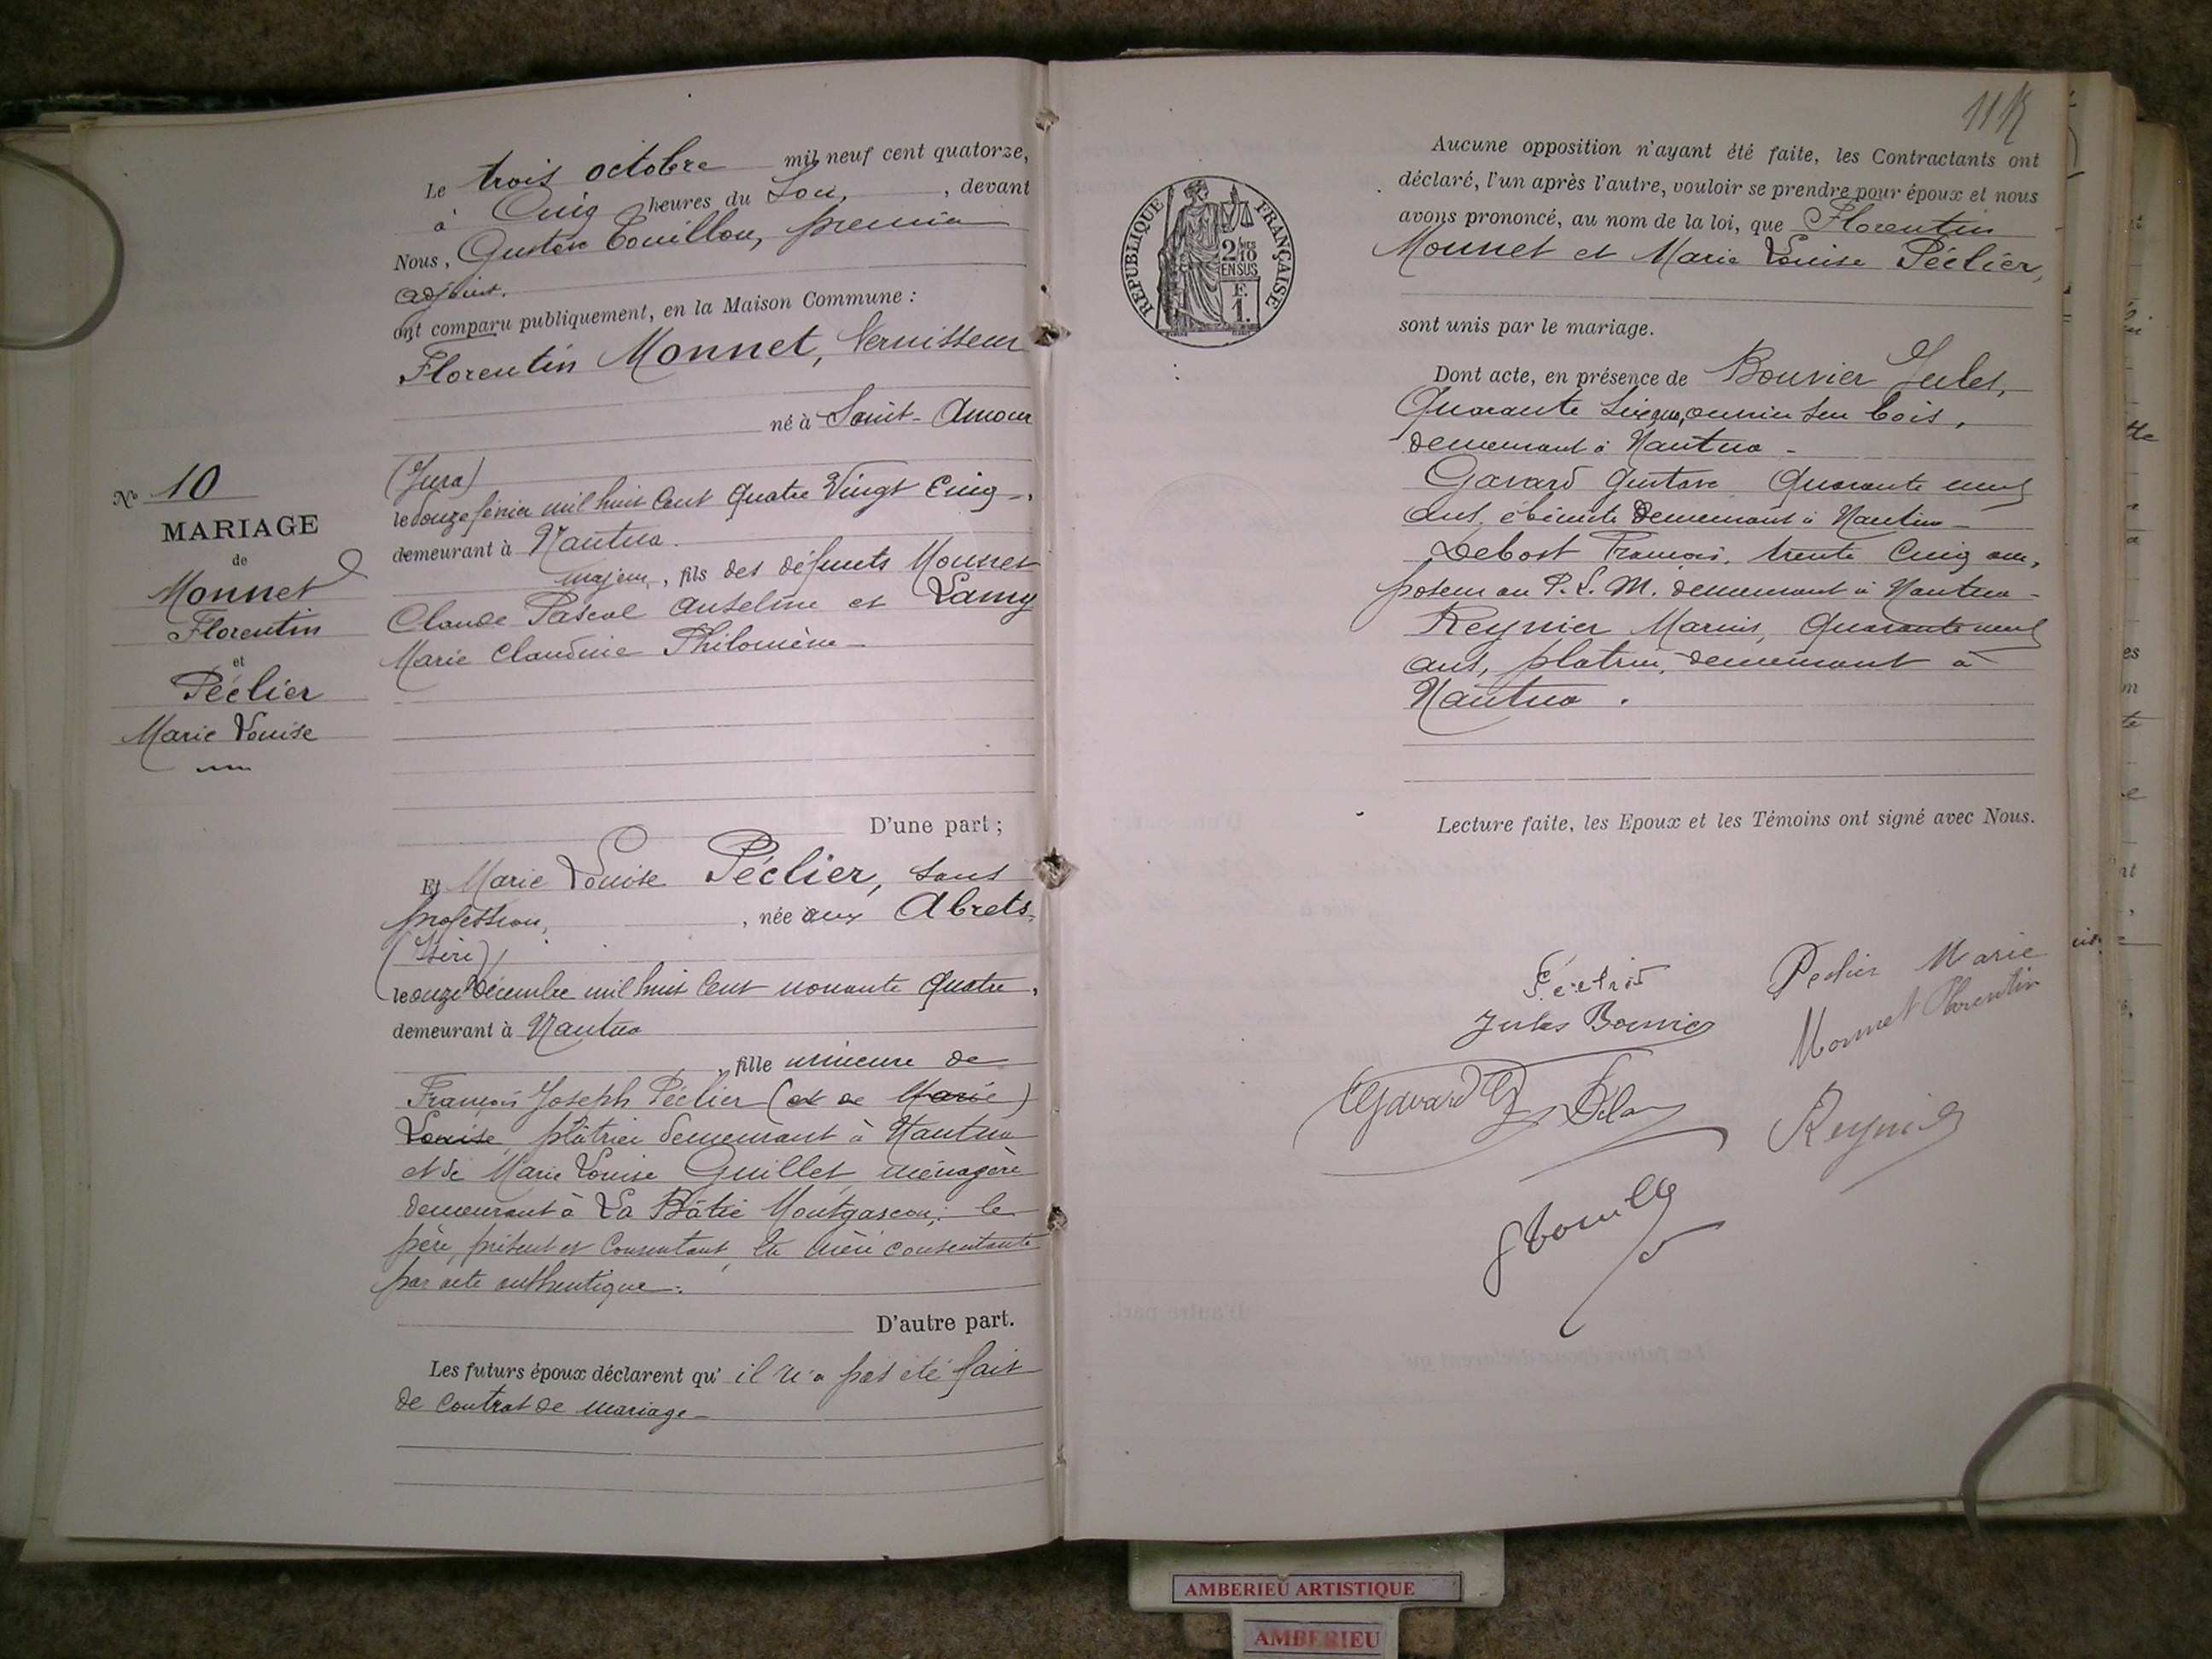 N° 10
MARIAGE
de
Monnet
Florentin
et
Péclier
Marie Louise
Le trois octobre mil neuf cent quatorze,
à Cinq heures du Soir, devant
Nous, Gustave Touillon, premier
adjoint.
ont comparu publiquement, en la Maison Commune :
Florentin Monnet, Vernisseur
né à Saint-Amour
(Jura)
le douze février mil huit Cent Quatre Vingt Cinq,
demeurant à Nantua.
majeur, fils des défunts Monnet
Claude Pascal Anselme et Lamy
Marie Claudine Philomène
D'une part ;
Et Marie Louise Péclier, sans
profession, , née aux Abrets,
(Isère)
le onze Décembre mil huit Cent nonante Quatre,
demeurant à Nantua
, fille mineure de
François Joseph Péclier (et de Marie)
Louise, plâtrier demeurant à Nantua
et de Marie Louise Guillet, ménagère
demeurant à La Bâtie Montgascon; le
père, présent et Consentant, la mère consentante
par acte authentique.
D'autre part.
Les futurs époux déclarent qu' il n'a pas été fait
de Contrat de mariage
Aucune opposition n'ayant été faite, les Contractants ont
déclaré, l'un après l'autre, vouloir se prendre pour époux et nous
avons prononcé, au nom de la loi, que Florentin
Monnet et Marie Louise Péclier,
sont unis par le mariage.
Dont acte, en présence de Bouvier Jules,
Quarante ouvrier sur bois,
demeurant à Nantua -
Gavard Gustave Quarante neuf
ans, ébéniste Demeurant à Nantua -
Debost François, trente Cinq ans,
poseur au P. L. M. demeurant à Nantua -
Reynier Marius, Quarante neuf
ans, platrier, demeurant à
Nantua.
Lecture faite, les Epoux et les Témoins ont signé avec Nous.
Jules Bouvier
Péclier Marie
Monnet Florentin
Gavard G
Reynier
REPUBLIQUE FRANÇAISE
2/10
EN SUS
F.
1.
AMBERIEU ARTISTIQUE
AMBERIEU